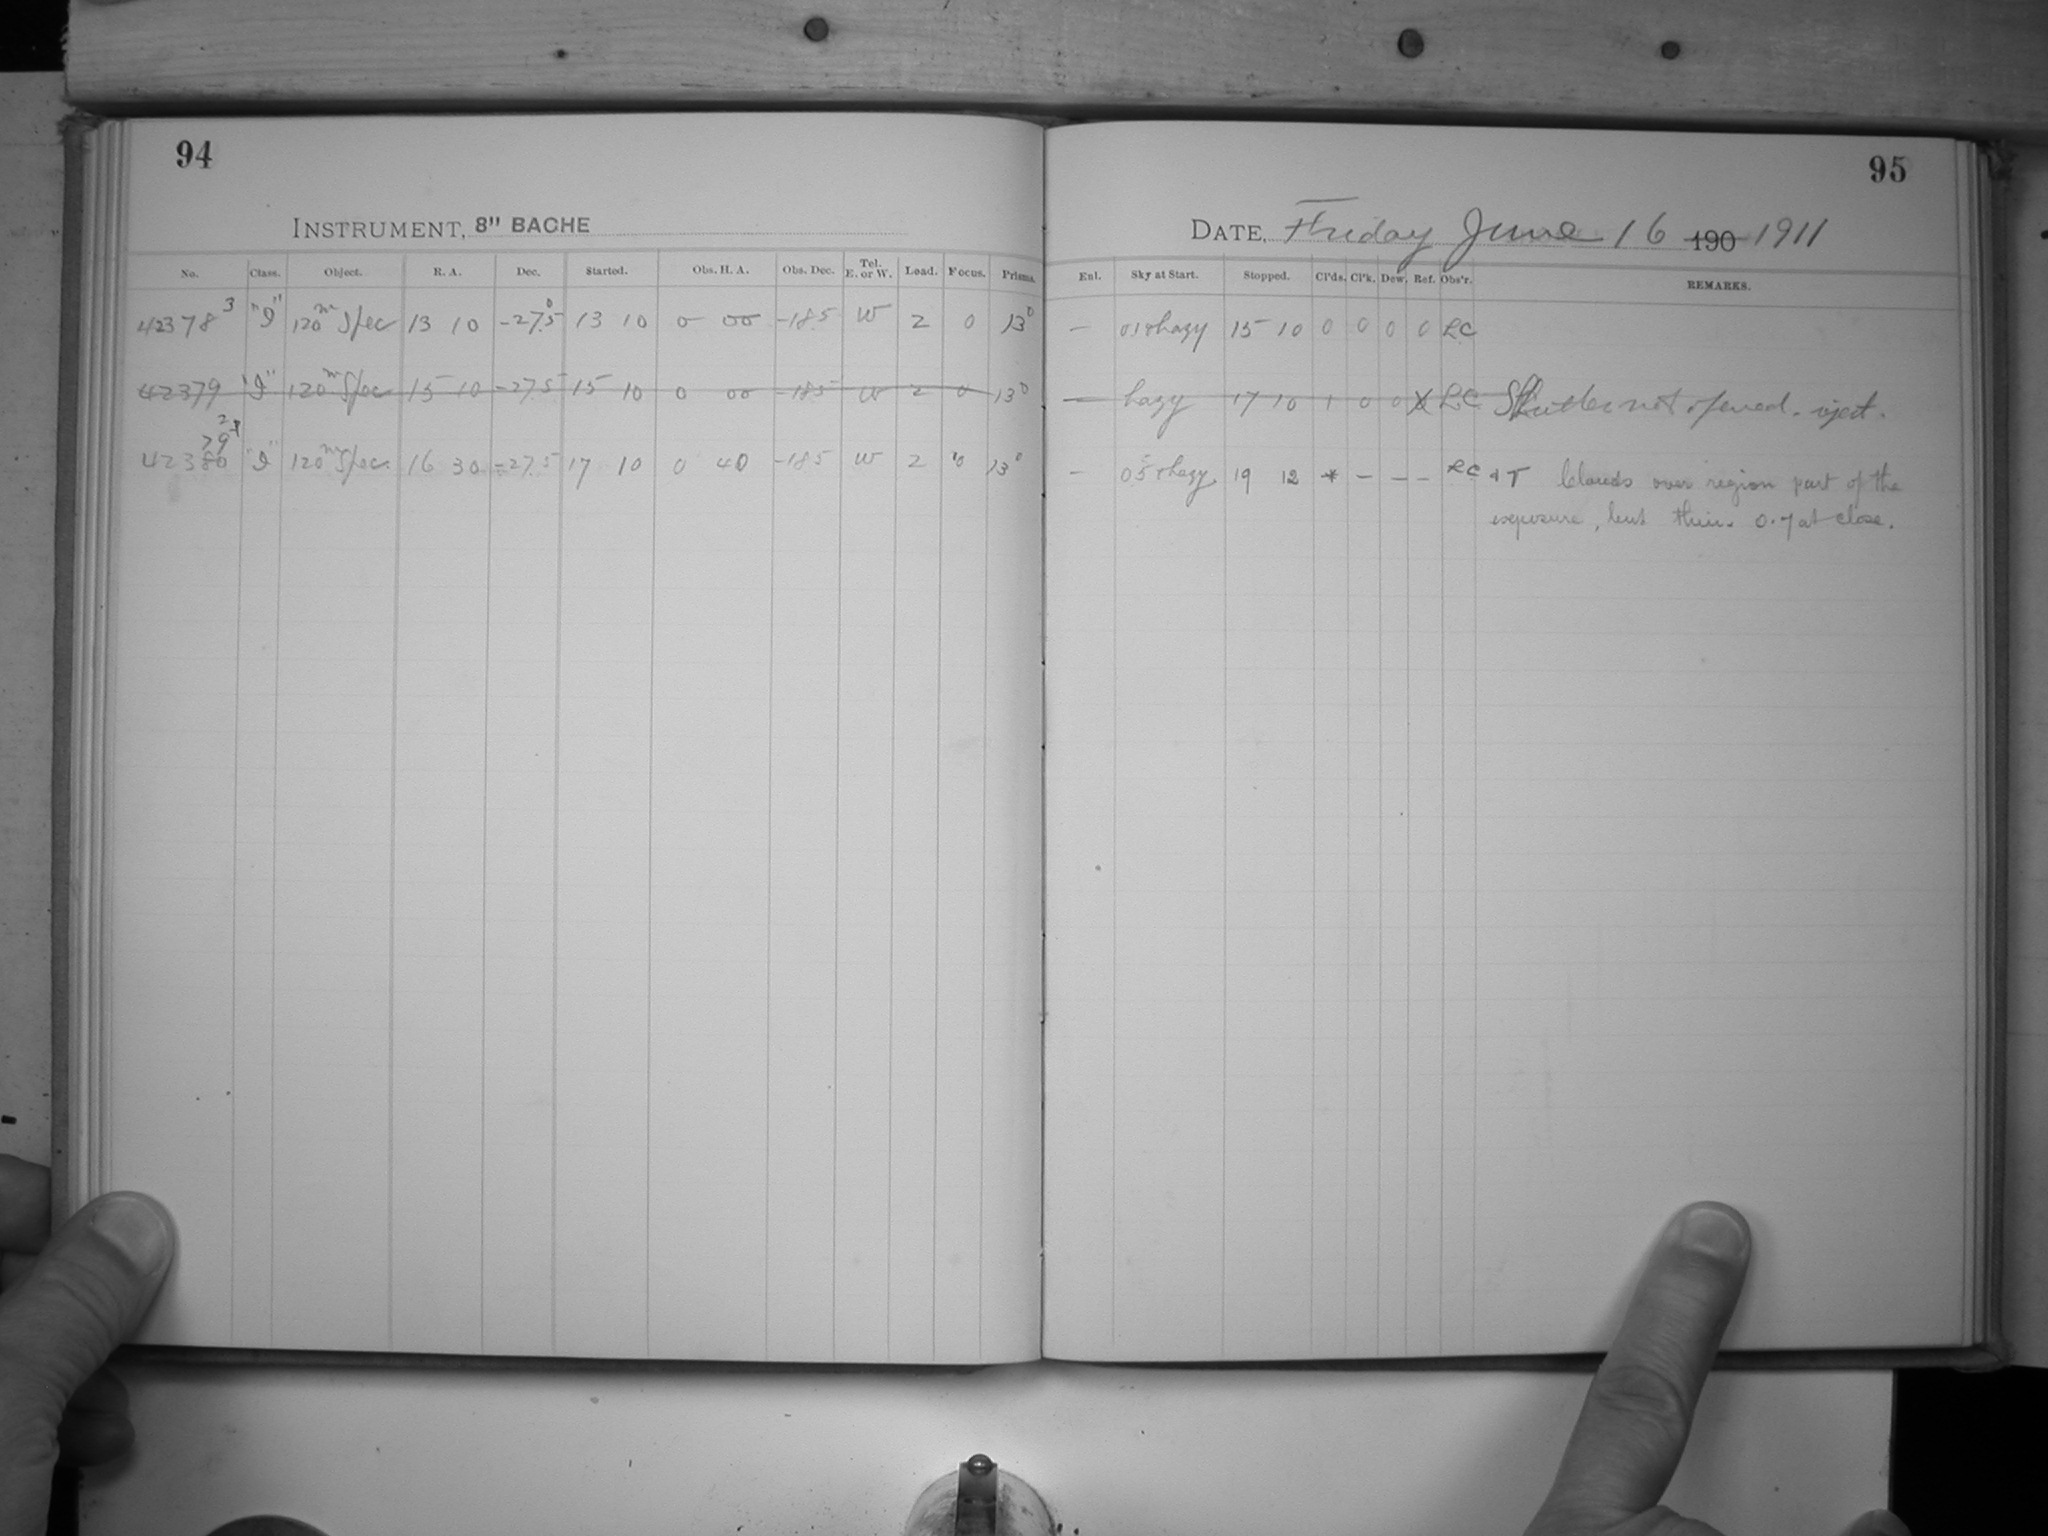 94
INSTRUMENT, 8" BACHE
No. Class. Object. R. A. Dec. Started. Obs. H. A. Obs. Dec. Tel. E. or W. Load. Focus. Prisms.
42378 3 "I" 120m Spec 13 10 -27.5 13 10 0 00 -18.5 W 2 0 13°
42379 "I" 120m Spec 15 10 -27.5 15 10 0 00 -18.5 W 2 0 13°
42380 79 2 "I" 120m Spec. 16 30 -27.5 17 10 0 40 -18.5 W 2 0 13°
95
DATE, Friday June 16 190 1911
Enl. Sky at Start. Stopped. Cl'ds. Cl'k. Dew. Ref. Obs'r. REMARKS.
— hazy 15 10 0 0 0 0 LC
— hazy 17 10 1 0 0 X LC Shutter not opened. reject.
— 05 hazy. 19 12 * — — — LC & T Clouds over region part of the
exposure, but thin. 0.7 at close.